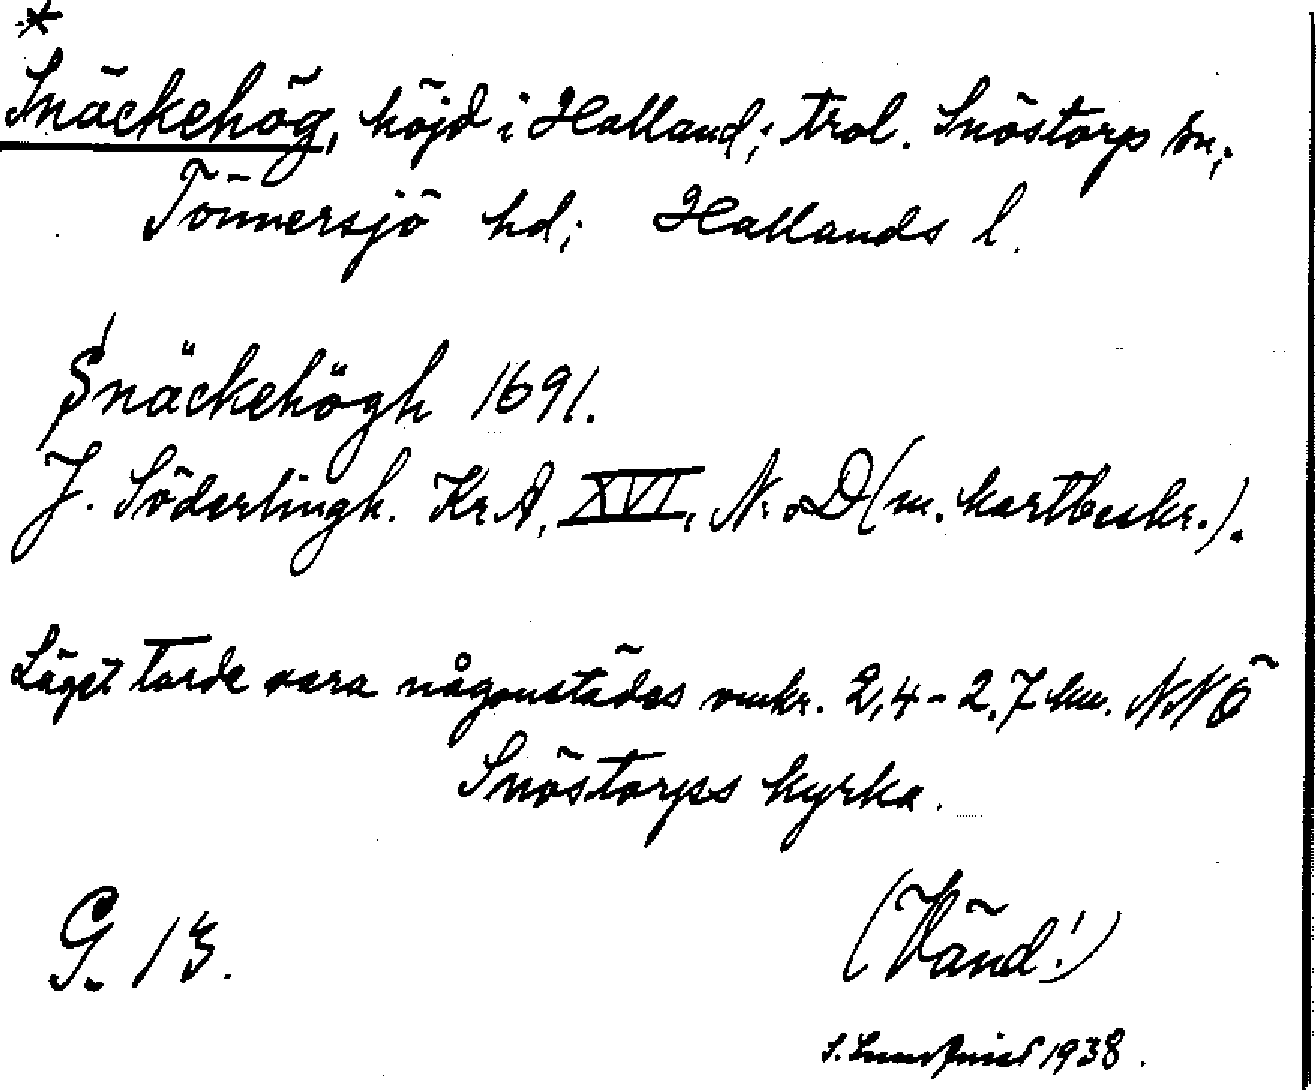 *
Snäckehög, höjd i Halland; trol. Snöstorp sn;
Tönnersjö hd; Hallands l.
Snäckehögh 1691.
J. Söderlingh. KrA, XVI, N:o D (m. kartbeskr.).
Läget torde vara någonstädes omkr. 2,4-2,7 km. NNÖ
Snöstorps kyrka.
G. 13.
(Vänd!)
S. Lundquist 1938.